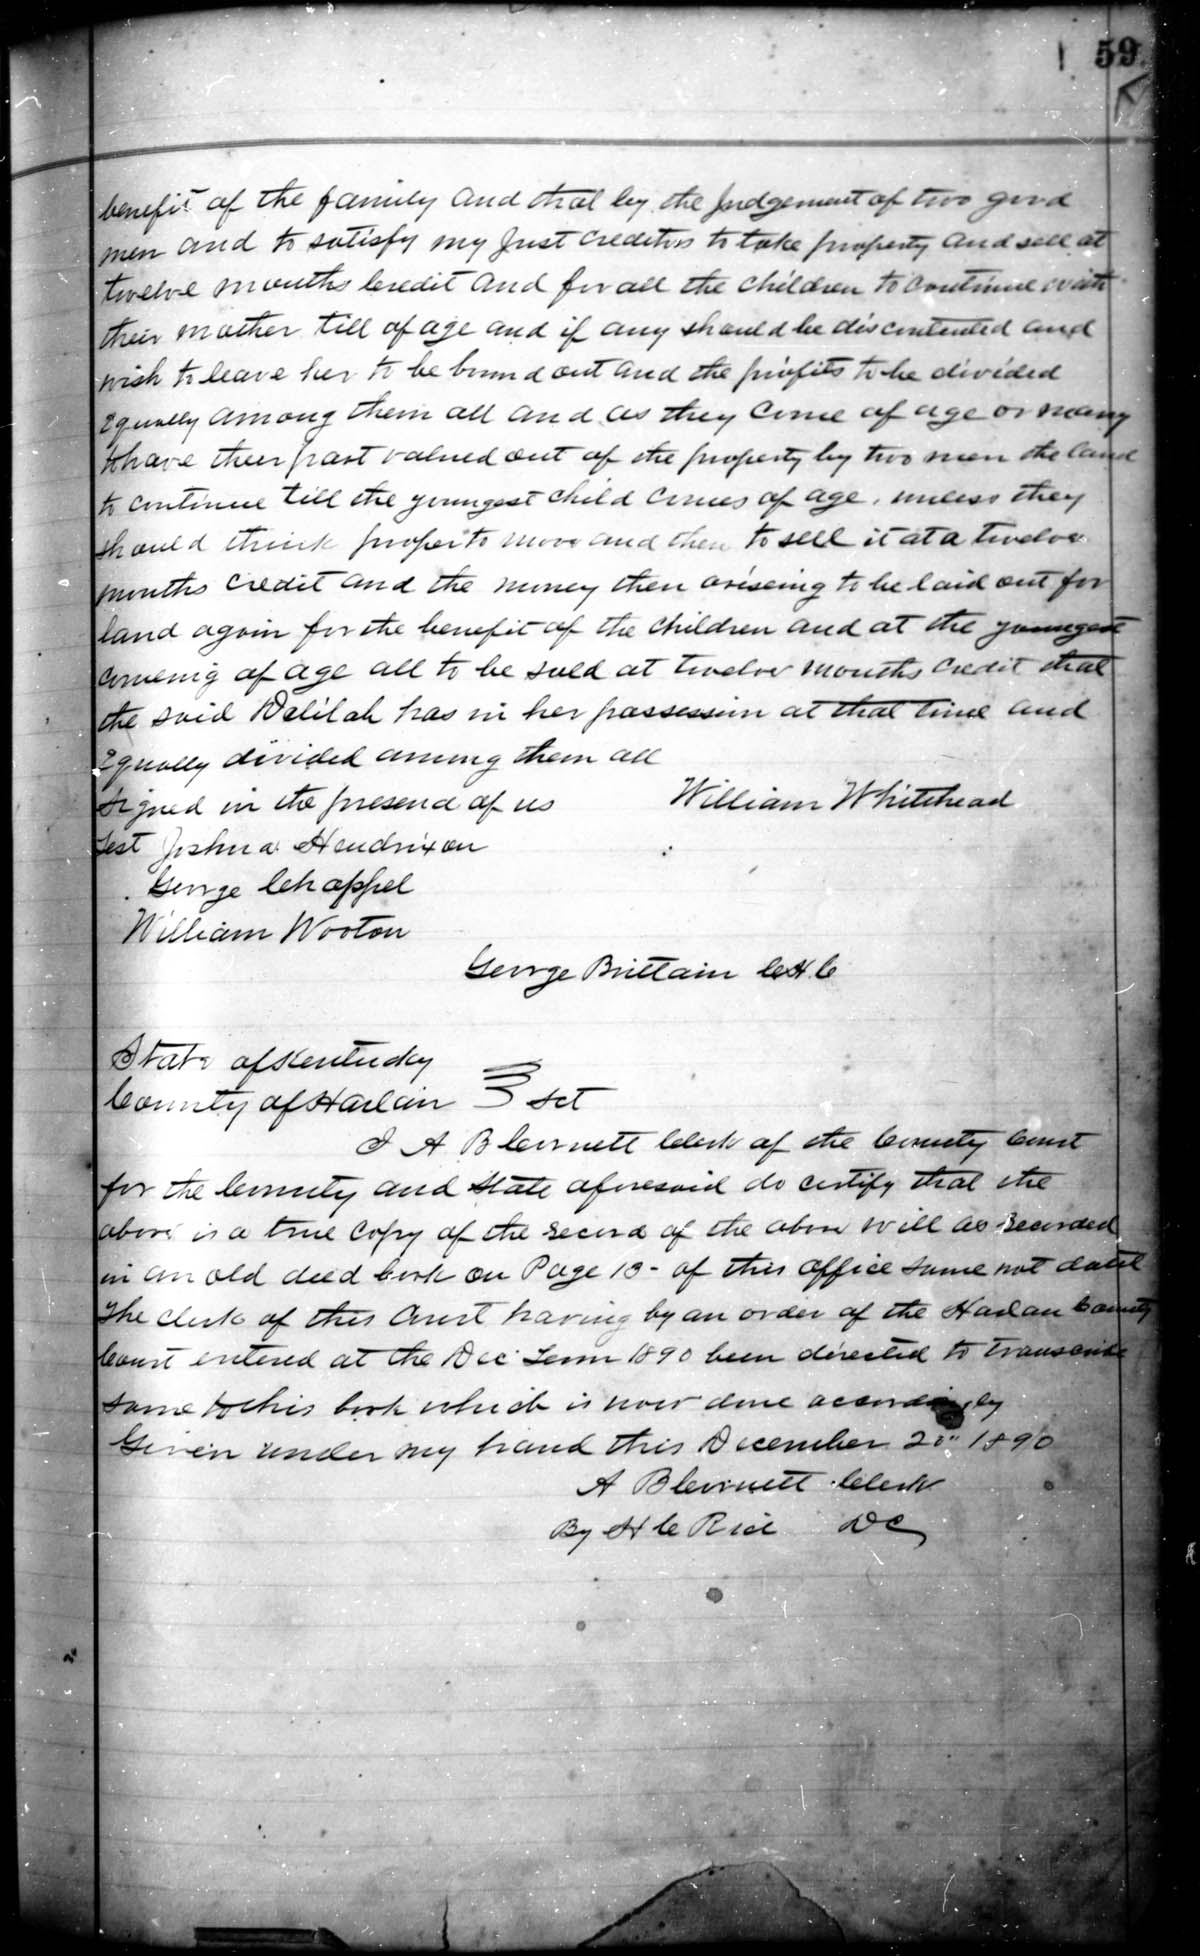 59
benefit of the family and that by the Judgement of two good
men and to satisfy my Just creditors to take property and sell at
twelve months credit and for all the children to continue with
their mother till of age and if any should be discontented and
wish to leave her to be bound out and the profits to be divided
Equally among them all and as they come of age or marry
to have their part valued out of the property by two men the land
to continue till the youngest child comes of age, unless they
should think proper to move and then to sell it at a twelve
months credit and the money then ariseing to be laid out for
land again for the benefit of the children and at the youngest
comeing of age all to be sold at twelve months credit that
the said Delilah has in her possession at that time and
Equally divided among them all
Signed in the presend of us William Whitehead
Test Joshua Hendrixon
George Chappel
William Wooton
George Brittain C H C
State of Kentucky
County of Harlan Sct
I A B Cornett Clerk of the County Court
for the County and State aforesaid do certify that the
above is a true copy of the record of the above will as Recorded
in an old deed book on Page 13 - of this office same not dated
The clerk of this Court having by an order of the Harlan County
Court entered at the Dec Term 1890 been directed to transcribe
same to this book which is now done accordingly
Given under my hand this December 20" 1890
A B Cornett Clerk
By H C Rice DC